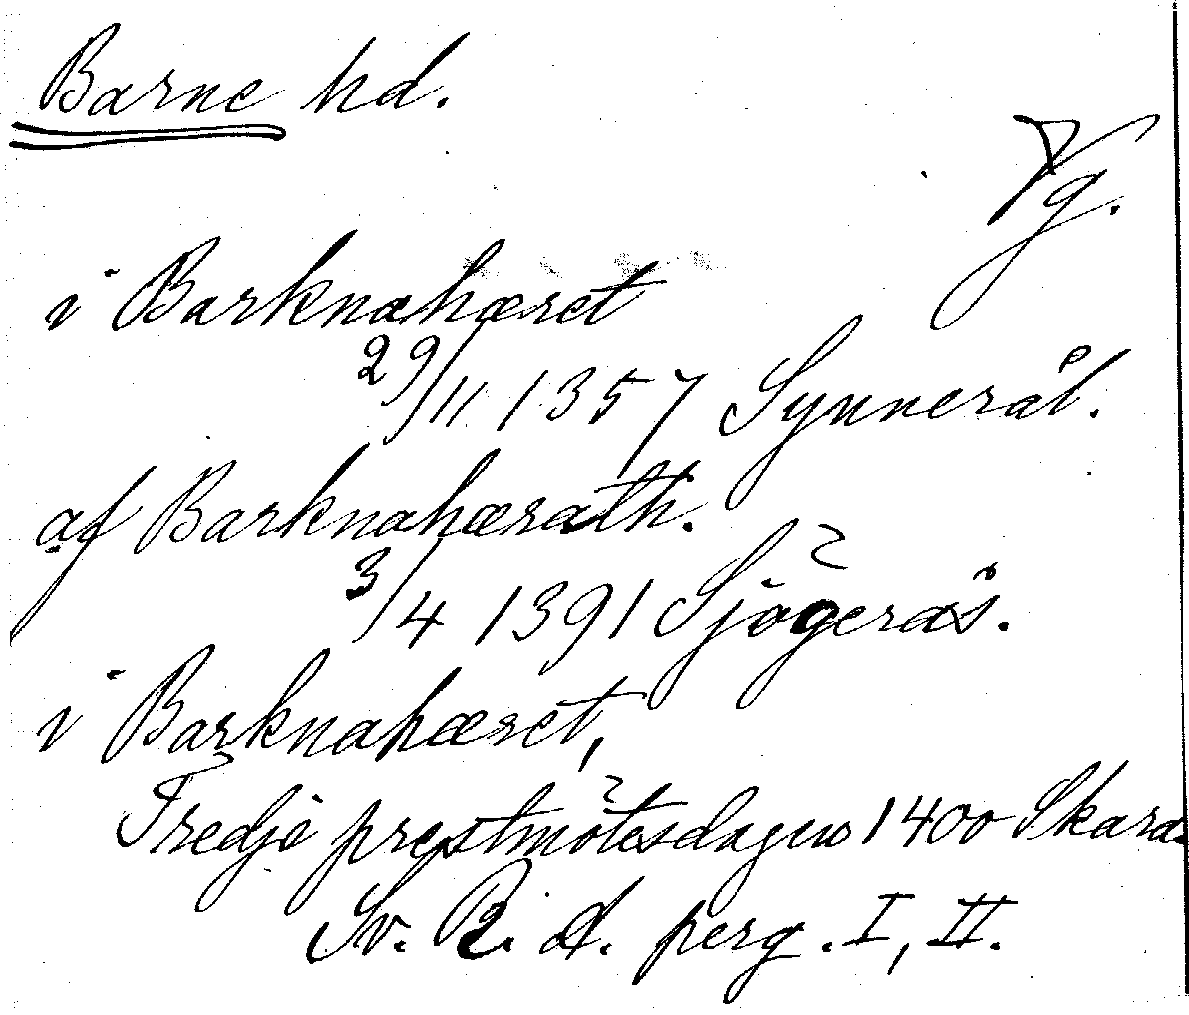 Barne hd.
Vg.
i Barknahæret
29/11 1357 Synnerål.
af Barknahærath.
3/4 1391 Sjögerås.
i Barknahæret,
Tredje prestmötesdagen 1400 Skara.
Sv. R. A. perg. I, II.